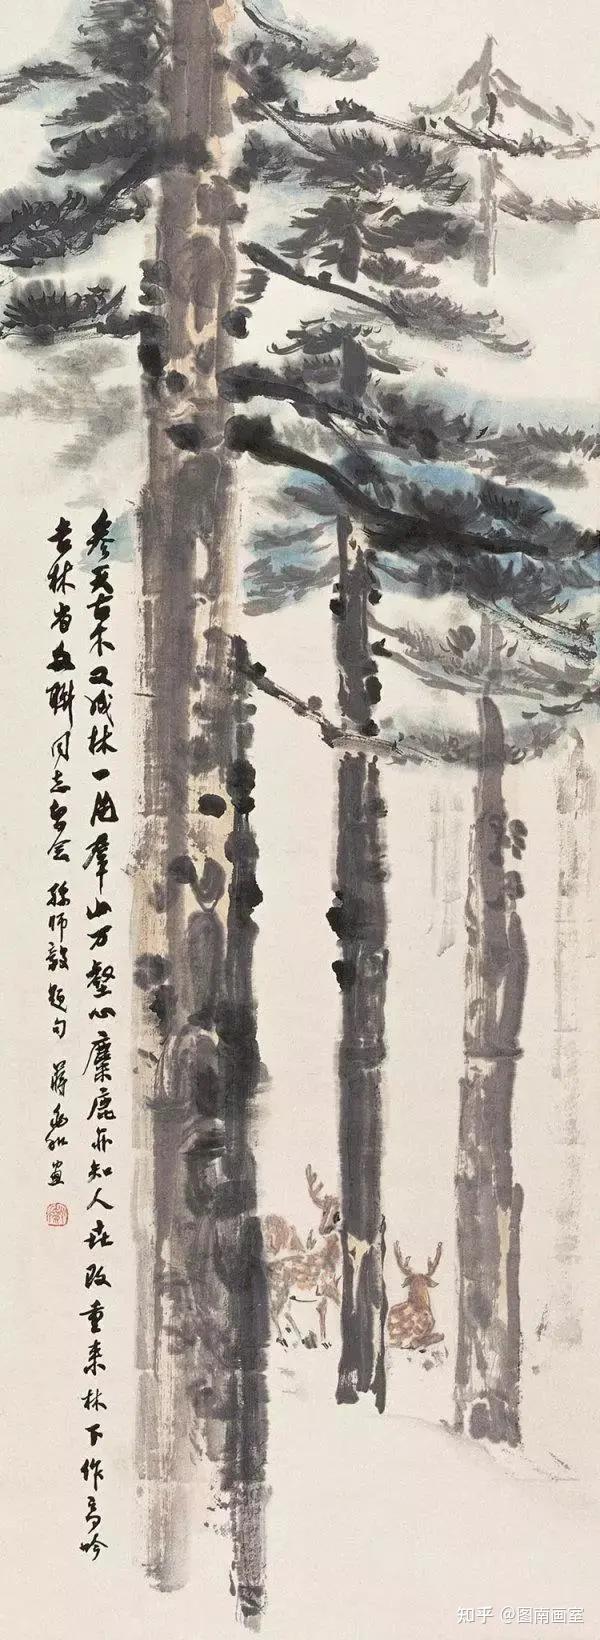 参天古木又成林一片羣山万壑心麋鹿亦知人世改重来林下作高吟
吉林省文联同志 孫师毅题句 蒋兆和画
知乎 @图南画室